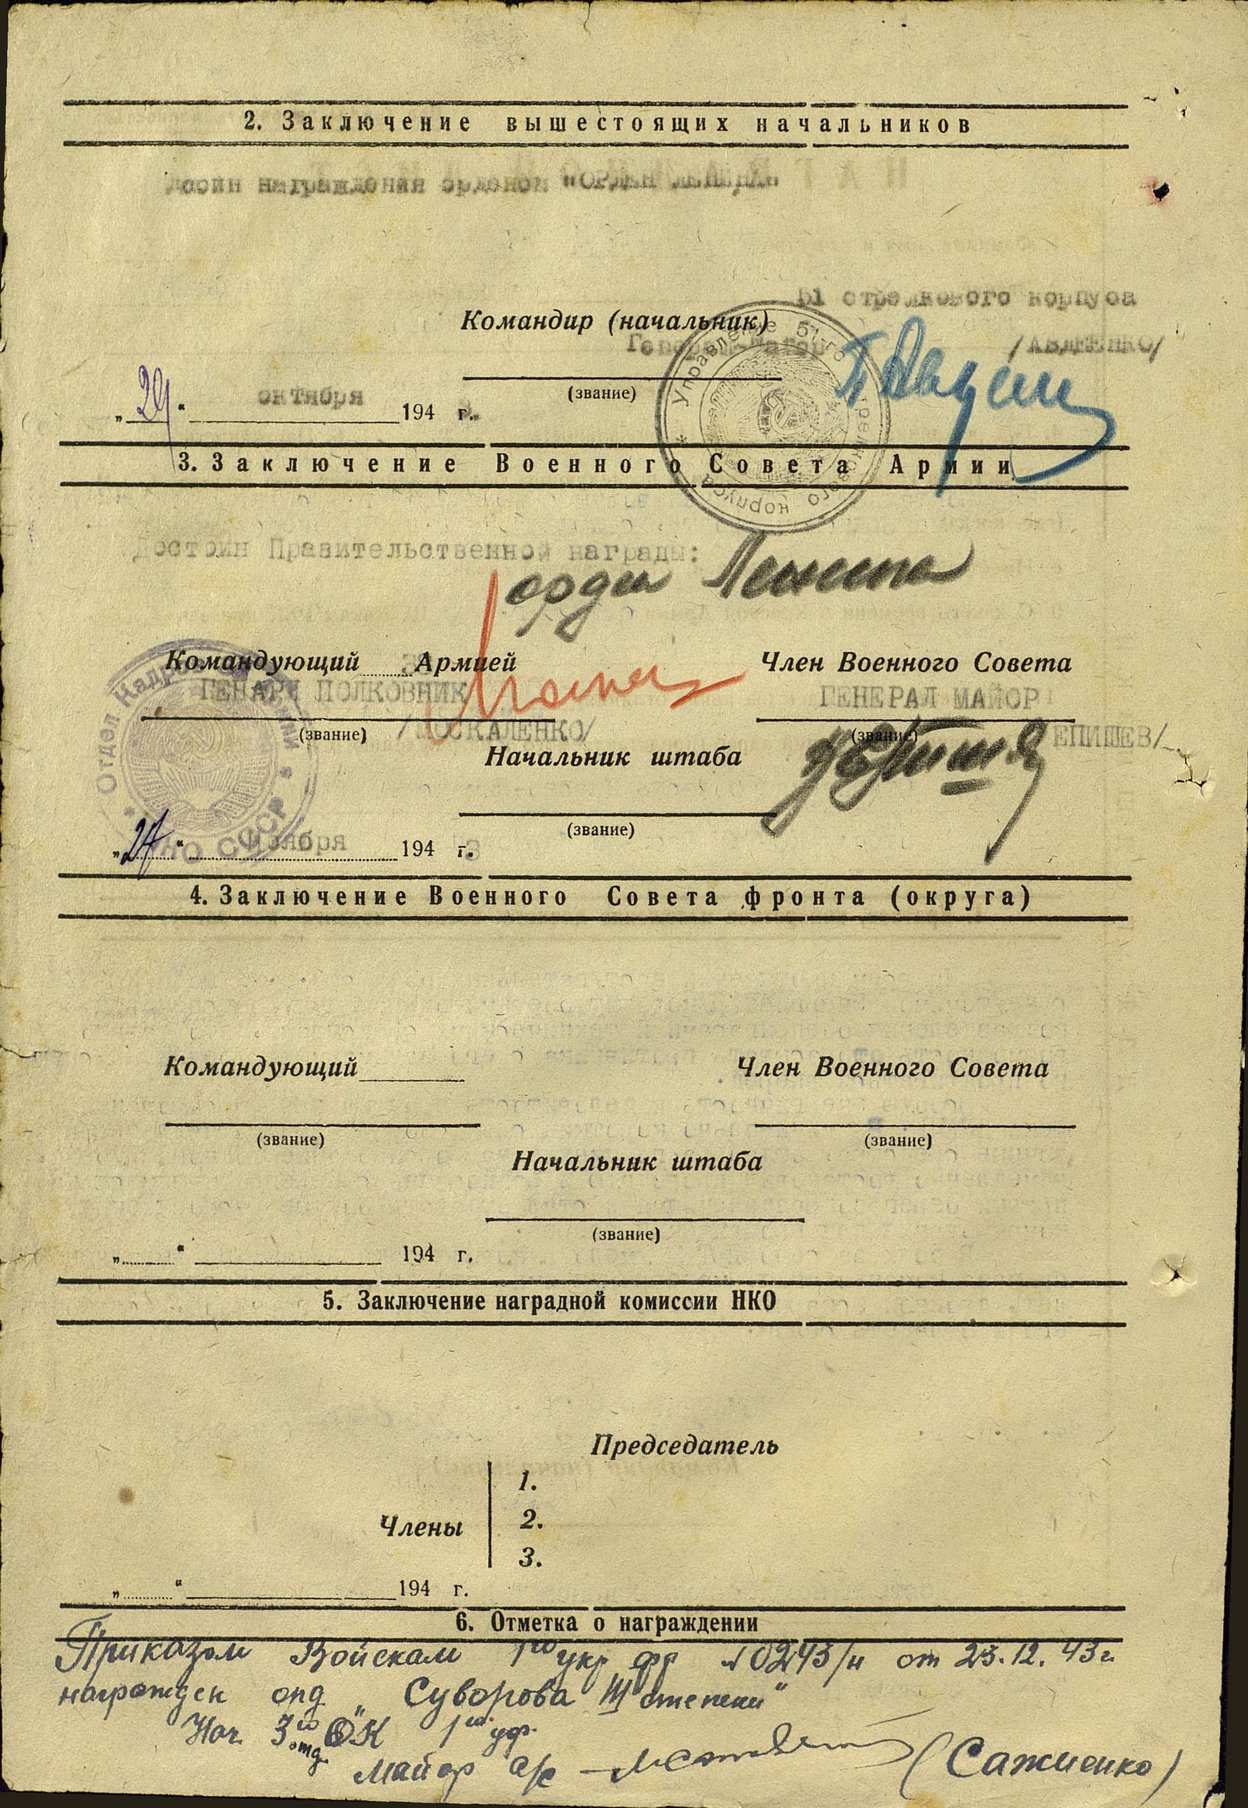 2. Заключение вышестоящих начальников
достоин награждения орденом "ОРДЕН ЛЕНИНА"
51 стрелкового корпуса
Командир (начальник)
Генерал-Майор /АВДЕЕНКО/
(звание)
„29“ октября 1943 г.
Управление 51-го стрелкового корпуса
3. Заключение Военного Совета Армии
Достоин Правительственной награды:
орден Ленина
Командующий 38 Армией Член Военного Совета
ГЕНЕРАЛ ПОЛКОВНИК ГЕНЕРАЛ МАЙОР
(звание) /МОСКАЛЕНКО/ (звание) ЕПИШЕВ/
Начальник штаба
(звание)
Отдел Кадров НКО СССР
„27“ ноября 1943 г.
4. Заключение Военного Совета фронта (округа)
Командующий Член Военного Совета
(звание) (звание)
Начальник штаба
(звание)
„ “ 194 г.
5. Заключение наградной комиссии НКО
Председатель
1.
Члены 2.
3.
„ “ 194 г.
6. Отметка о награждении
Приказом Войскам 1го укр фр №0243/н от 23.12.43г.
награжден орд „Суворова III степени“
Нач. 3го отд. ОК 1го уф.
Майор а/с (Сажиенко)